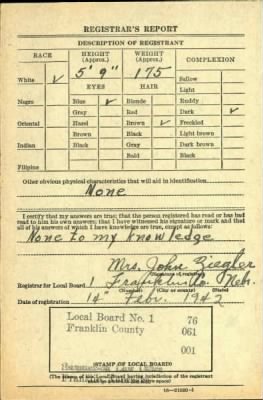 REGISTRAR'S REPORT
DESCRIPTION OF REGISTRANT
RACE HEIGHT (Approx.) WEIGHT (Approx.) COMPLEXION
5' 9" 175
White ✓ Sallow
EYES HAIR Light
Negro Blue ✓ Blonde Ruddy
Gray Red Dark ✓
Oriental Hazel Brown ✓ Freckled
Brown Black Light brown
Indian Black Gray Dark brown
Bald Black
Filipino
Other obvious physical characteristics that will aid in identification
None
I certify that my answers are true; that the person registered has read or has had read to
him his own answers; that I have witnessed his signature or mark and that
all of his answers of which I have knowledge are true, except as follows:
None to my knowledge
Mrs. John Ziegler
Registrar for Local Board 1 Franklin Co. Neb.
(Number) (City or county) (State)
Date of registration 14 Febr. 1942
Local Board No. 1 76
Franklin County 061
001
(STAMP OF LOCAL BOARD)
(The stamp of the Local Board having jurisdiction of the registrant